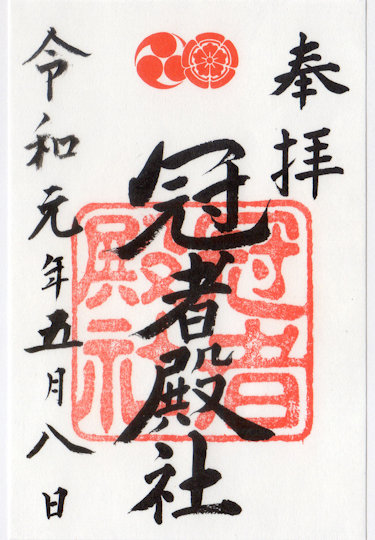 奉拝
冠者殿社
冠者
殿社
令和元年五月八日